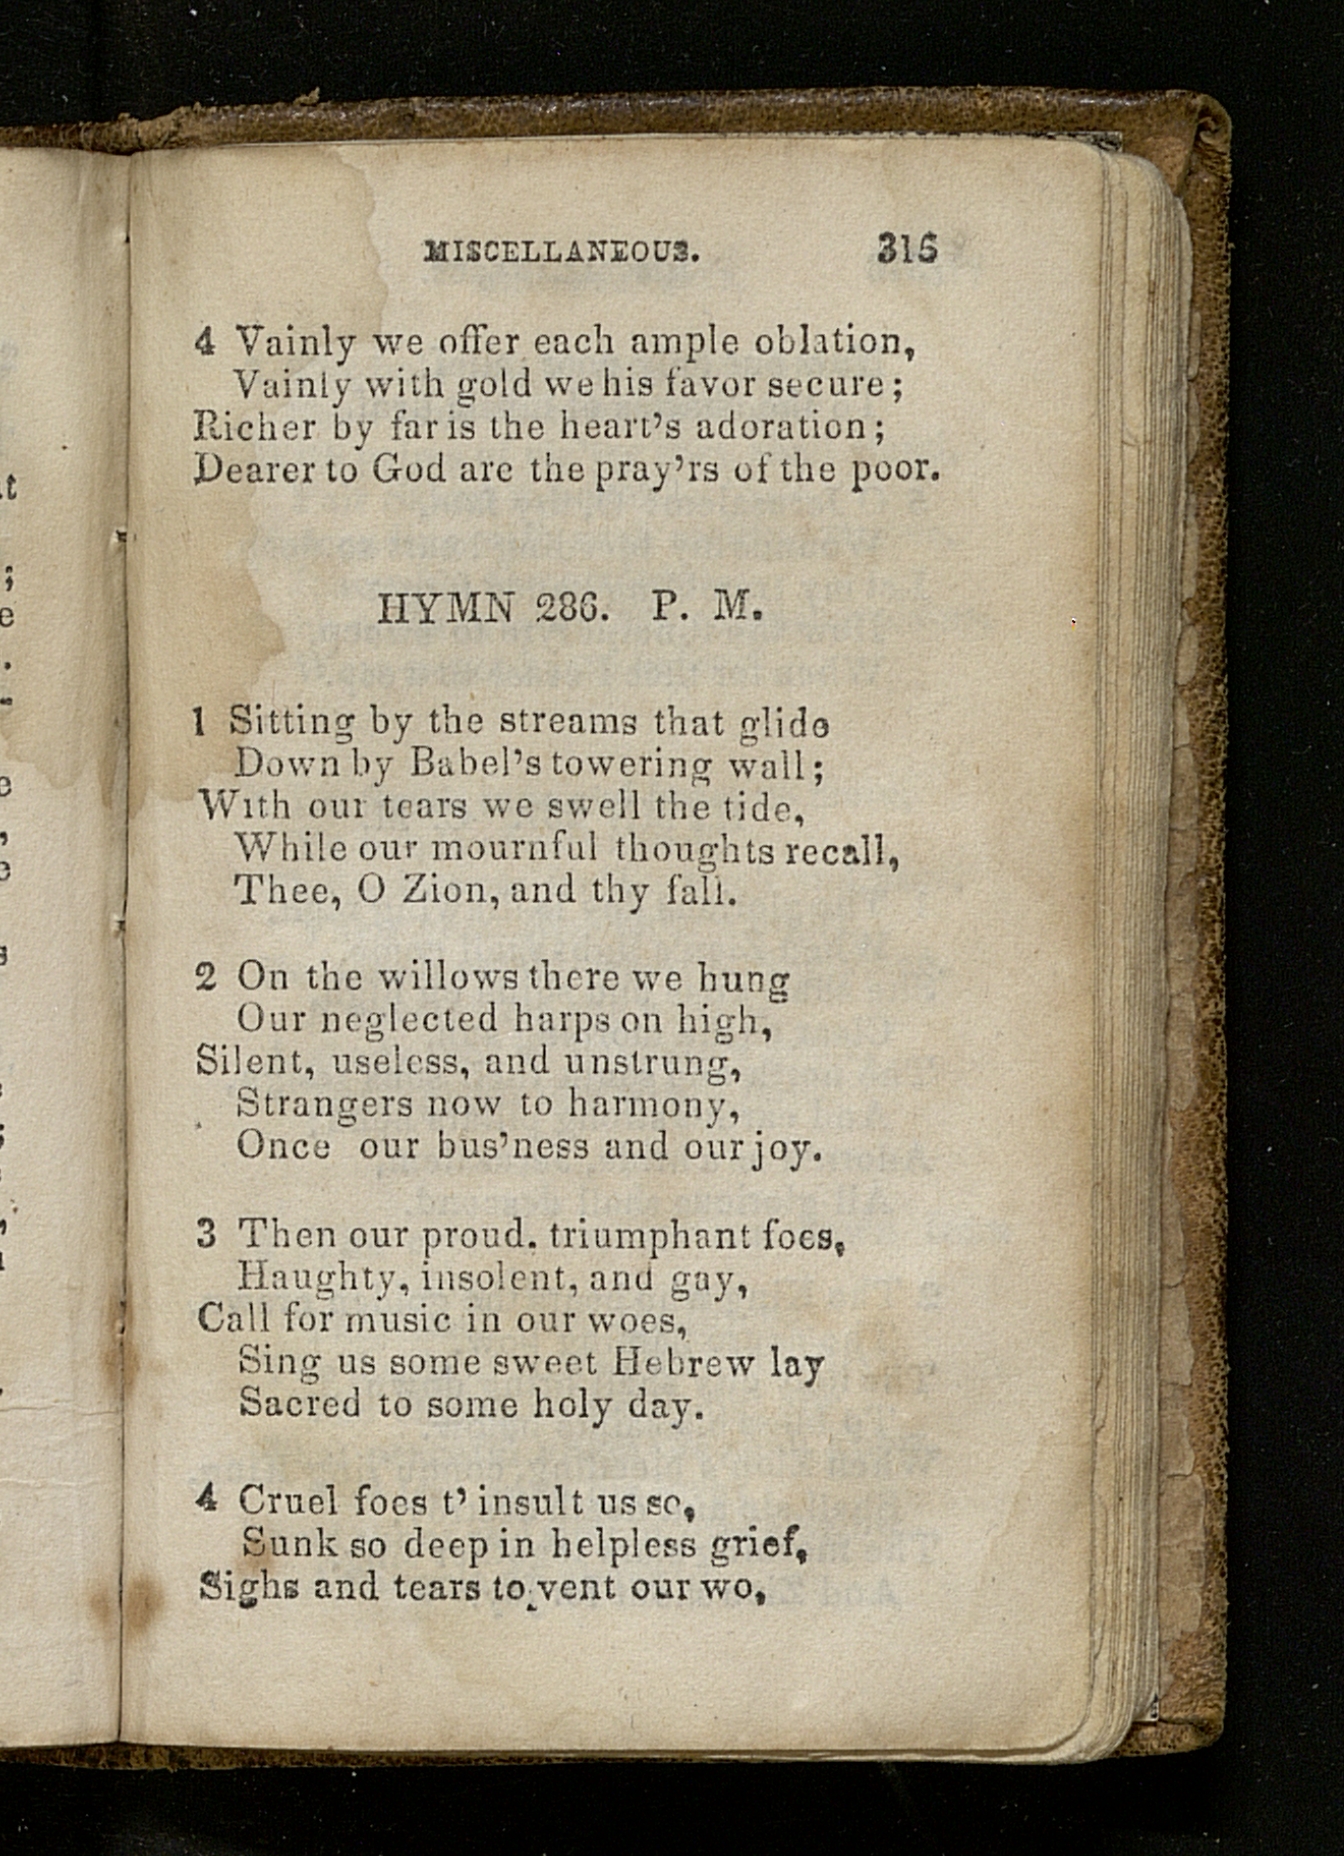 MISCELLANEOUS. 315
4 Vainly we offer each ample oblation,
Vainly with gold we his favor secure;
Richer by far is the heart's adoration;
Dearer to God are the pray'rs of the poor.
HYMN 286. P. M.
1 Sitting by the streams that glide
Down by Babel's towering wall;
With our tears we swell the tide,
While our mournful thoughts recall,
Thee, O Zion, and thy fall.
2 On the willows there we hung
Our neglected harps on high,
Silent, useless, and unstrung,
Strangers now to harmony,
Once our bus'ness and our joy.
3 Then our proud. triumphant foes,
Haughty, insolent, and gay,
Call for music in our woes,
Sing us some sweet Hebrew lay
Sacred to some holy day.
4 Cruel foes t' insult us so,
Sunk so deep in helpless grief,
Sighs and tears to vent our wo,